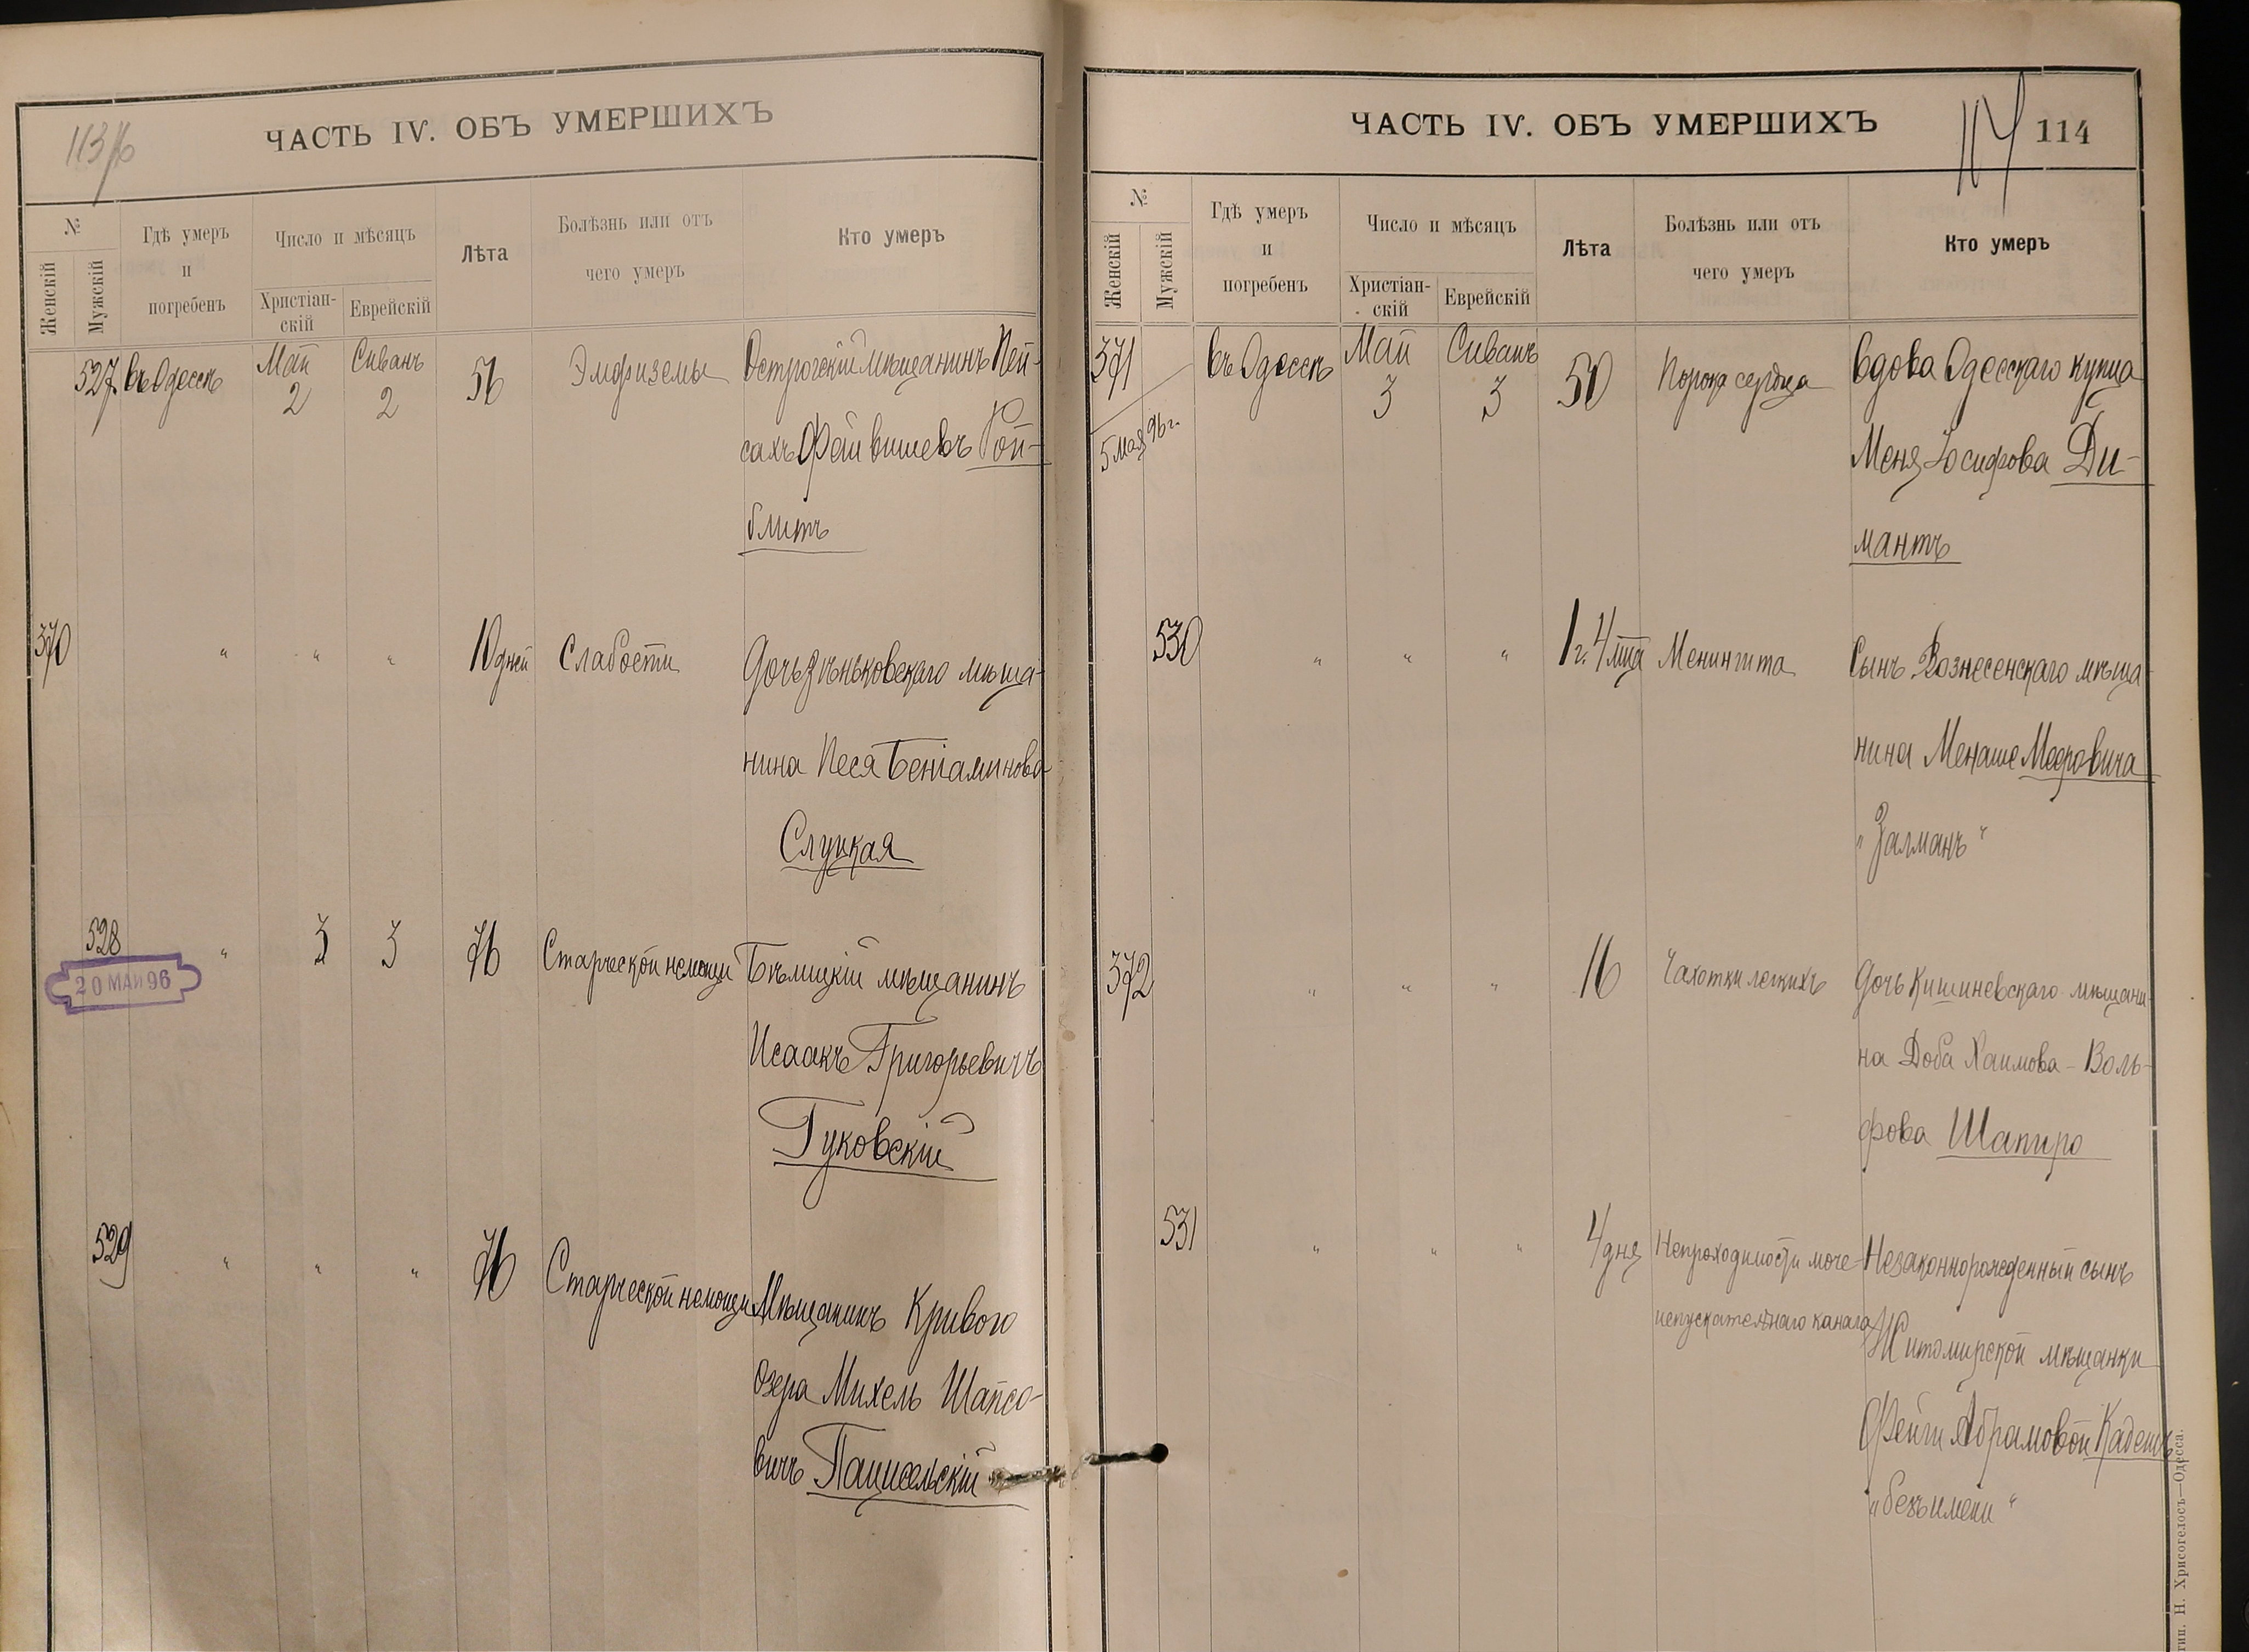 113/б
ЧАСТЬ IV. ОБЪ УМЕРШИХЪ
№
Женскій
Мужскій
Гдѣ умеръ
и
погребенъ
Число и мѣсяцъ
Христіан-
скій
Еврейскій
Лѣта
Болѣзнь или отъ
чего умеръ
Кто умеръ
527 въ Одессѣ Май 2 Сиванъ 2 56 Эмфиземы Острогскій мѣщанинъ Пей-
сахъ Фейвишевъ Рой-
блитъ
370 " " " 10 дней Слабости Дочь Зѣньковскаго мѣща-
нина Песя Беніаминова
Слуцкая
528 " 3 3 76 Старческой немощи Бѣлицкій мѣщанинъ
20 МАЙ 96
Исаакъ Григорьевичъ
Гуковскій
529 " " " 76 Старческой немощи Мѣщанинъ Кривого
Озера Михель Шапсо-
вичъ Пацисельскій
ЧАСТЬ IV. ОБЪ УМЕРШИХЪ
114 114
№
Женскій
Мужскій
Гдѣ умеръ
и
погребенъ
Число и мѣсяцъ
Христіан-
скій
Еврейскій
Лѣта
Болѣзнь или отъ
чего умеръ
Кто умеръ
371 въ Одессѣ Май 3 Сиванъ 3 50 Порока сердца Вдова Одесскаго купца
5 мая 96 г.
Меня Іосифова Ди-
мантъ
530 " " " 1 г. 4 мца Менингита Сынъ Вознесенскаго мѣща-
нина Менаше Мееровича
"Залманъ"
372 " " " 16 Чахотки легкихъ Дочь Кишиневскаго мѣщани-
на Доба Хаимова-Воль-
фова Шапиро
531 " " " 4 дня Непроходимости моче- Незаконнорожденный сынъ
испускательнаго канала Житомирской мѣщанки
Фейги Абрамовой
"безъ имени"
тип. Н. Хрисогелосъ—Одесса.